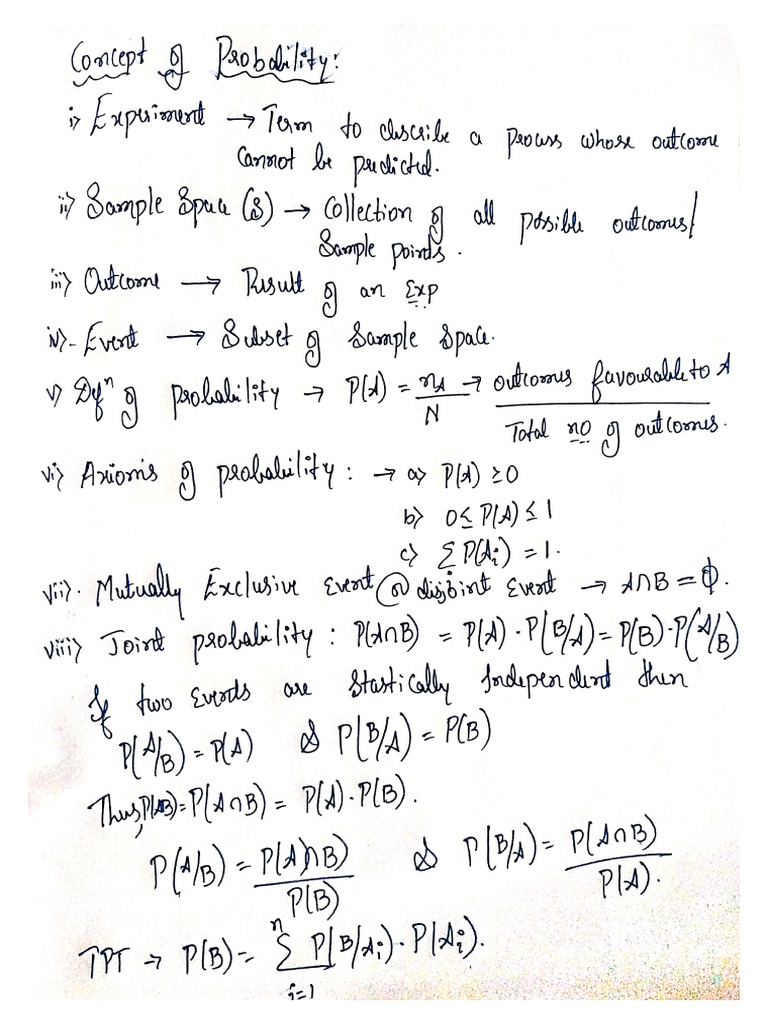 Concept of Probability:
i) Experiment → Term to describe a process whose outcome
cannot be predicted.
ii) Sample Space (S) → Collection of all possible outcomes/
Sample points.
iii) Outcome → Result of an Exp
iv) - Event → Subset of Sample Space.
v) Defⁿ of probability → P(A) = nA/N → outcomes favourable to A / Total no of outcomes.
vi) Axioms of probability : → a) P(A) ≥ 0
b) 0 ≤ P(A) ≤ 1
c) ΣP(Ai) = 1.
vii). Mutually Exclusive Event or disjoint event → A∩B = φ.
viii) Joint probability : P(A∩B) = P(A)·P(B/A) = P(B)·P(A/B)
If two events are Stastically Independent then
P(A/B) = P(A) & P(B/A) = P(B)
Thus, P(AB) = P(A∩B) = P(A)·P(B).
P(A/B) = P(A)∩B)/P(B) & P(B/A) = P(A∩B)/P(A).
TPT → P(B) = Σ(i=1 to n) P(B/Ai)·P(Ai).